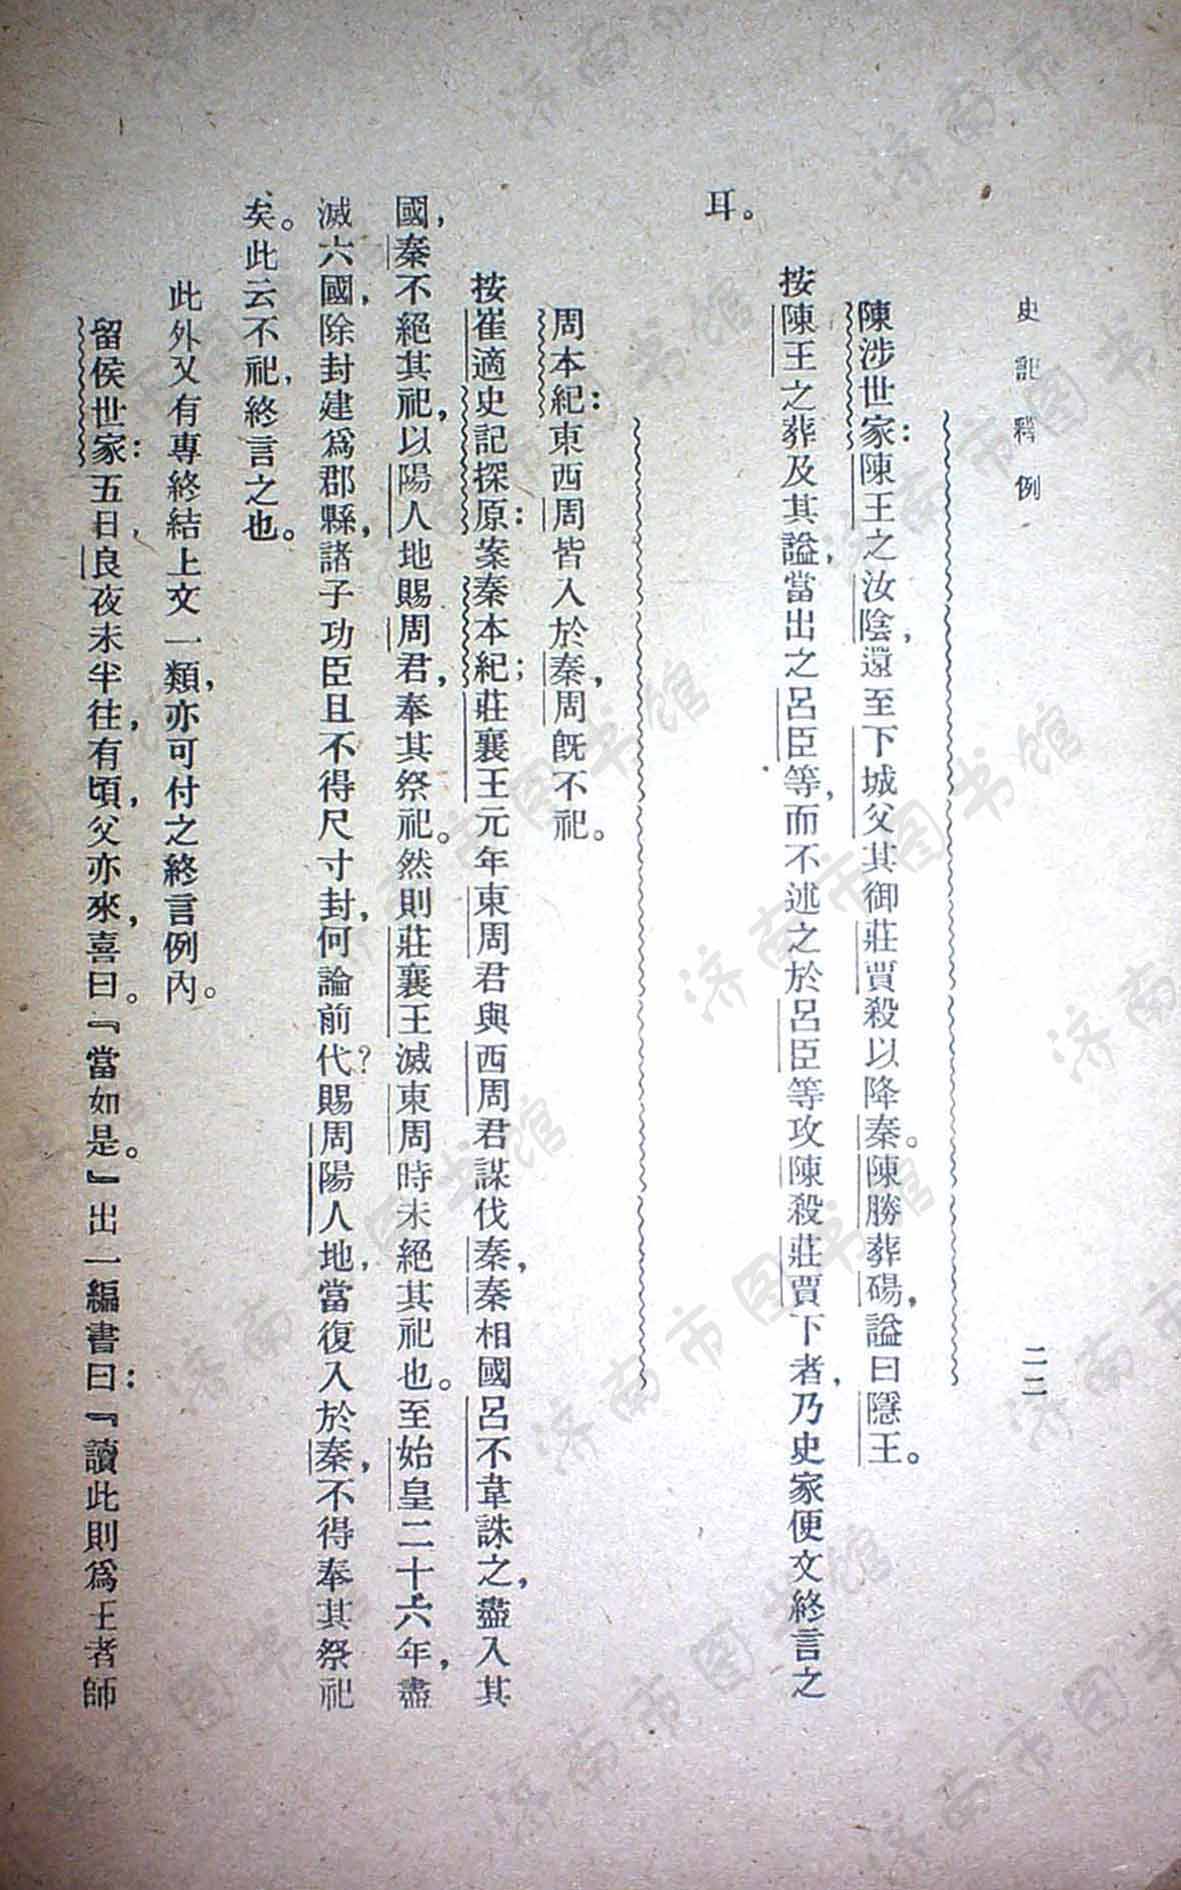 史記釋例
二二
陳涉世家：陳王之汝陰，還至下城父，其御莊賈殺以降秦。陳勝葬碭，謚曰隱王。
按陳王之葬及其謚，當出之呂臣等，而不述之於呂臣等攻陳殺莊賈下者，乃史家便文終言之
耳。
周本紀：東西周皆入於秦，周既不祀。
按崔適史記探原：案秦本紀；莊襄王元年東周君與西周君謀伐秦，秦相國呂不韋誅之，盡入其
國，秦不絕其祀，以陽人地賜周君，奉其祭祀。然則莊襄王滅東周時未絕其祀也。至始皇二十六年，盡
滅六國，除封建爲郡縣，諸子功臣且不得尺寸封，何論前代？賜周陽人地，當復入於秦，不得奉其祭祀
矣。此云不祀，終言之也。
此外又有專終結上文一類，亦可付之終言例內。
留侯世家：五日，良夜未半往，有頃，父亦來，喜曰。『當如是。』出一編書曰：『讀此則爲王者師
济南市图书馆